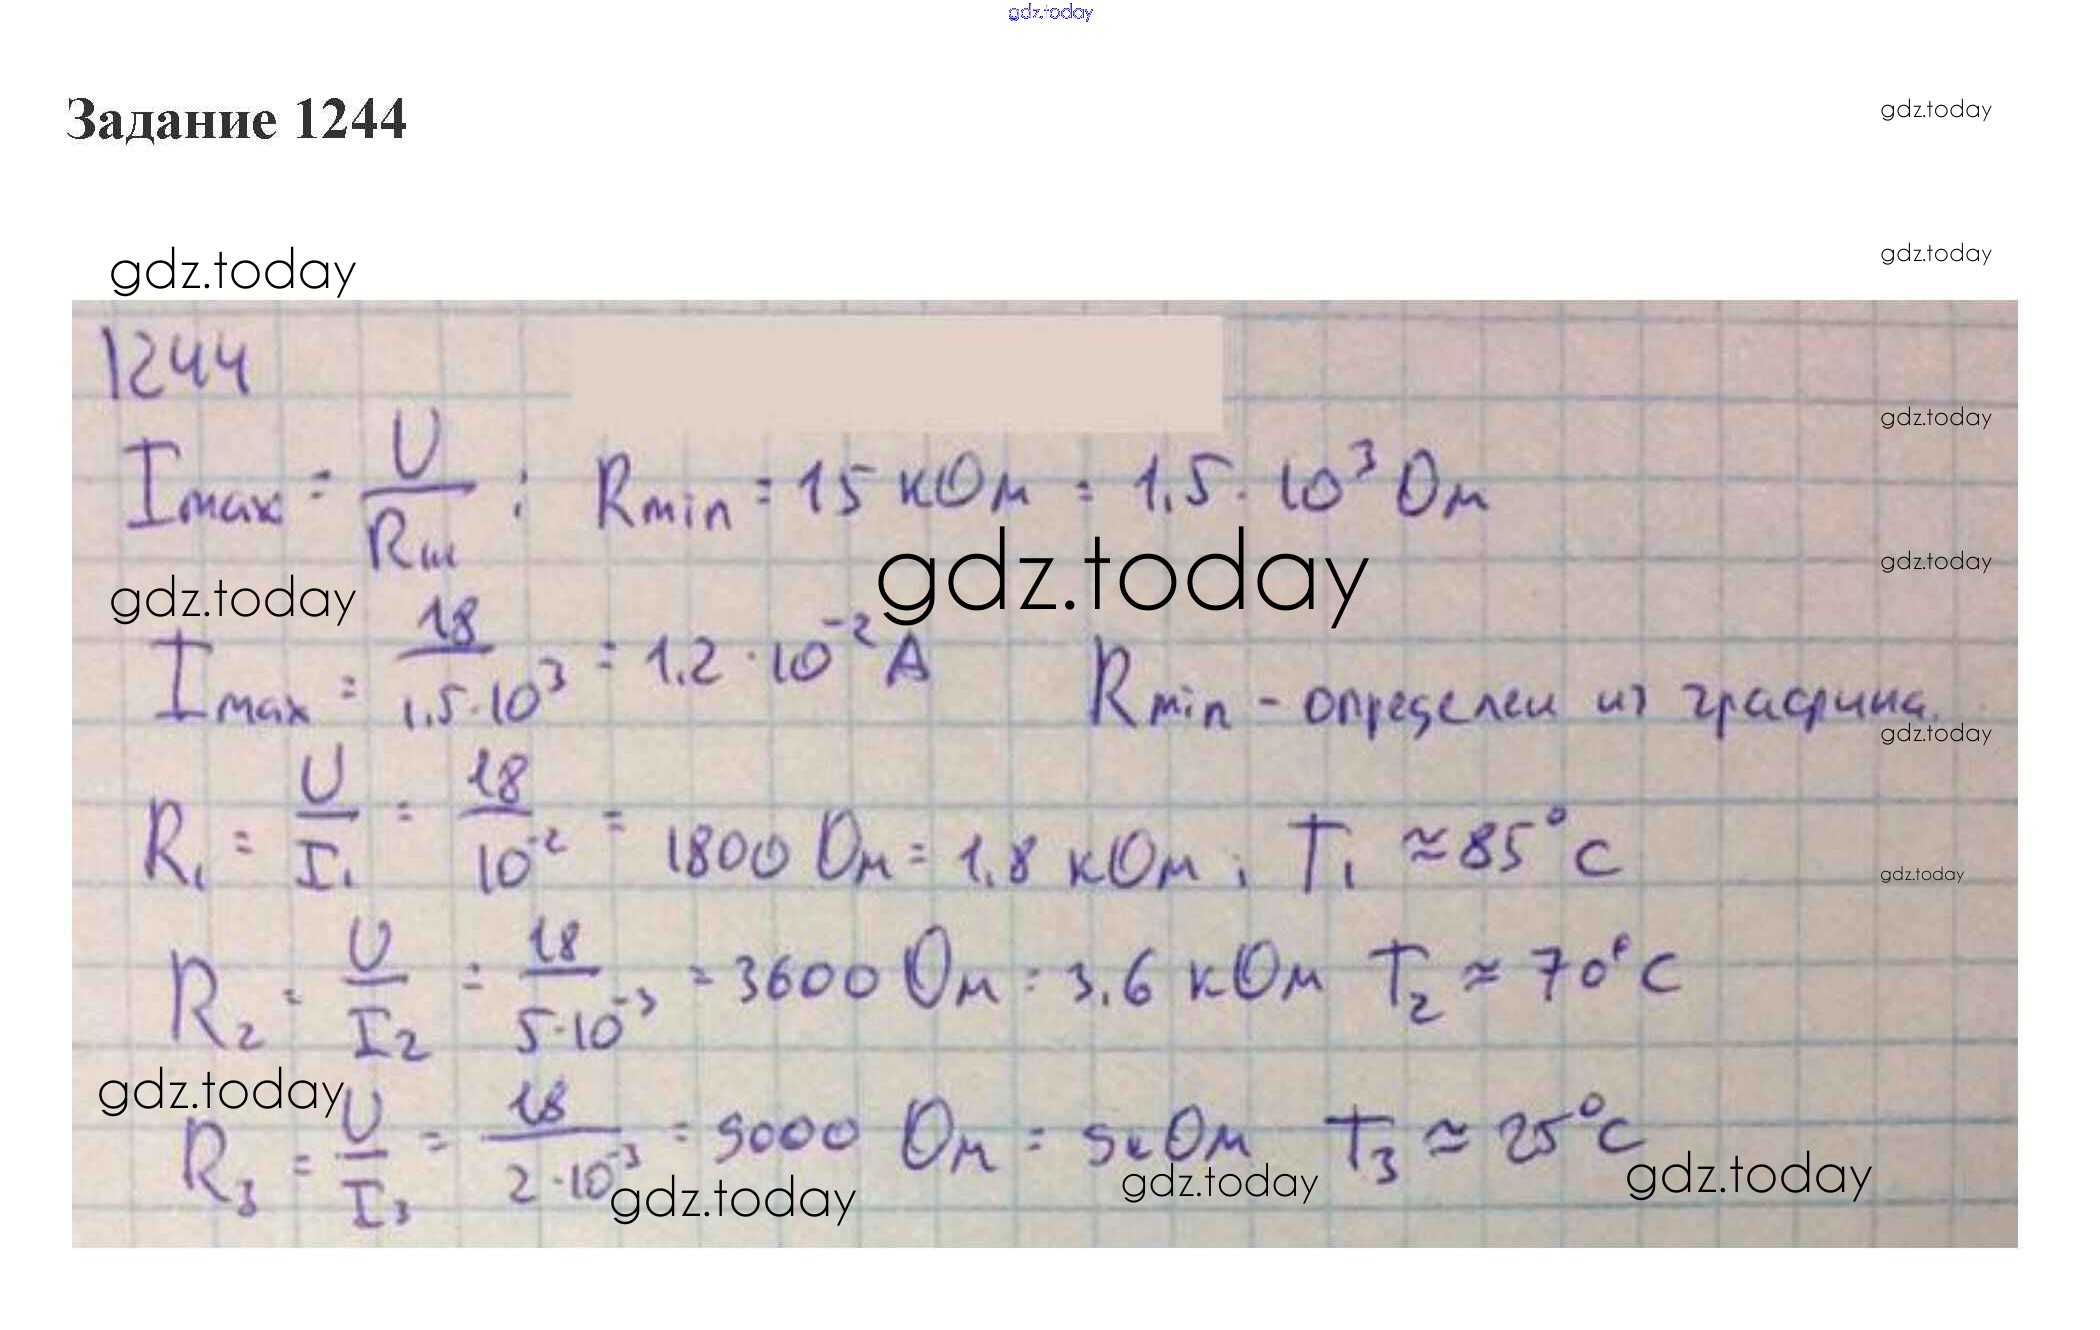 gdz.today
Задание 1244
gdz.today
gdz.today
gdz.today
1244
gdz.today
Imax = U/Rm ; Rmin = 15 кОм = 1.5 · 10³ Ом
gdz.today
gdz.today
gdz.today
Imax = 18/1.5·10³ = 1.2 · 10⁻² А Rmin - определен из графика.
gdz.today
R₁ = U/I₁ = 18/10⁻² = 1800 Ом = 1.8 кОм ; T₁ ≈ 85°C
gdz.today
R₂ = U/I₂ = 18/5·10⁻³ = 3600 Ом = 3.6 кОм T₂ ≈ 70°C
gdz.today
R₃ = U/I₃ = 18/2·10⁻³ = 9000 Ом = 9кОм T₃ ≈ 25°C
gdz.today
gdz.today
gdz.today